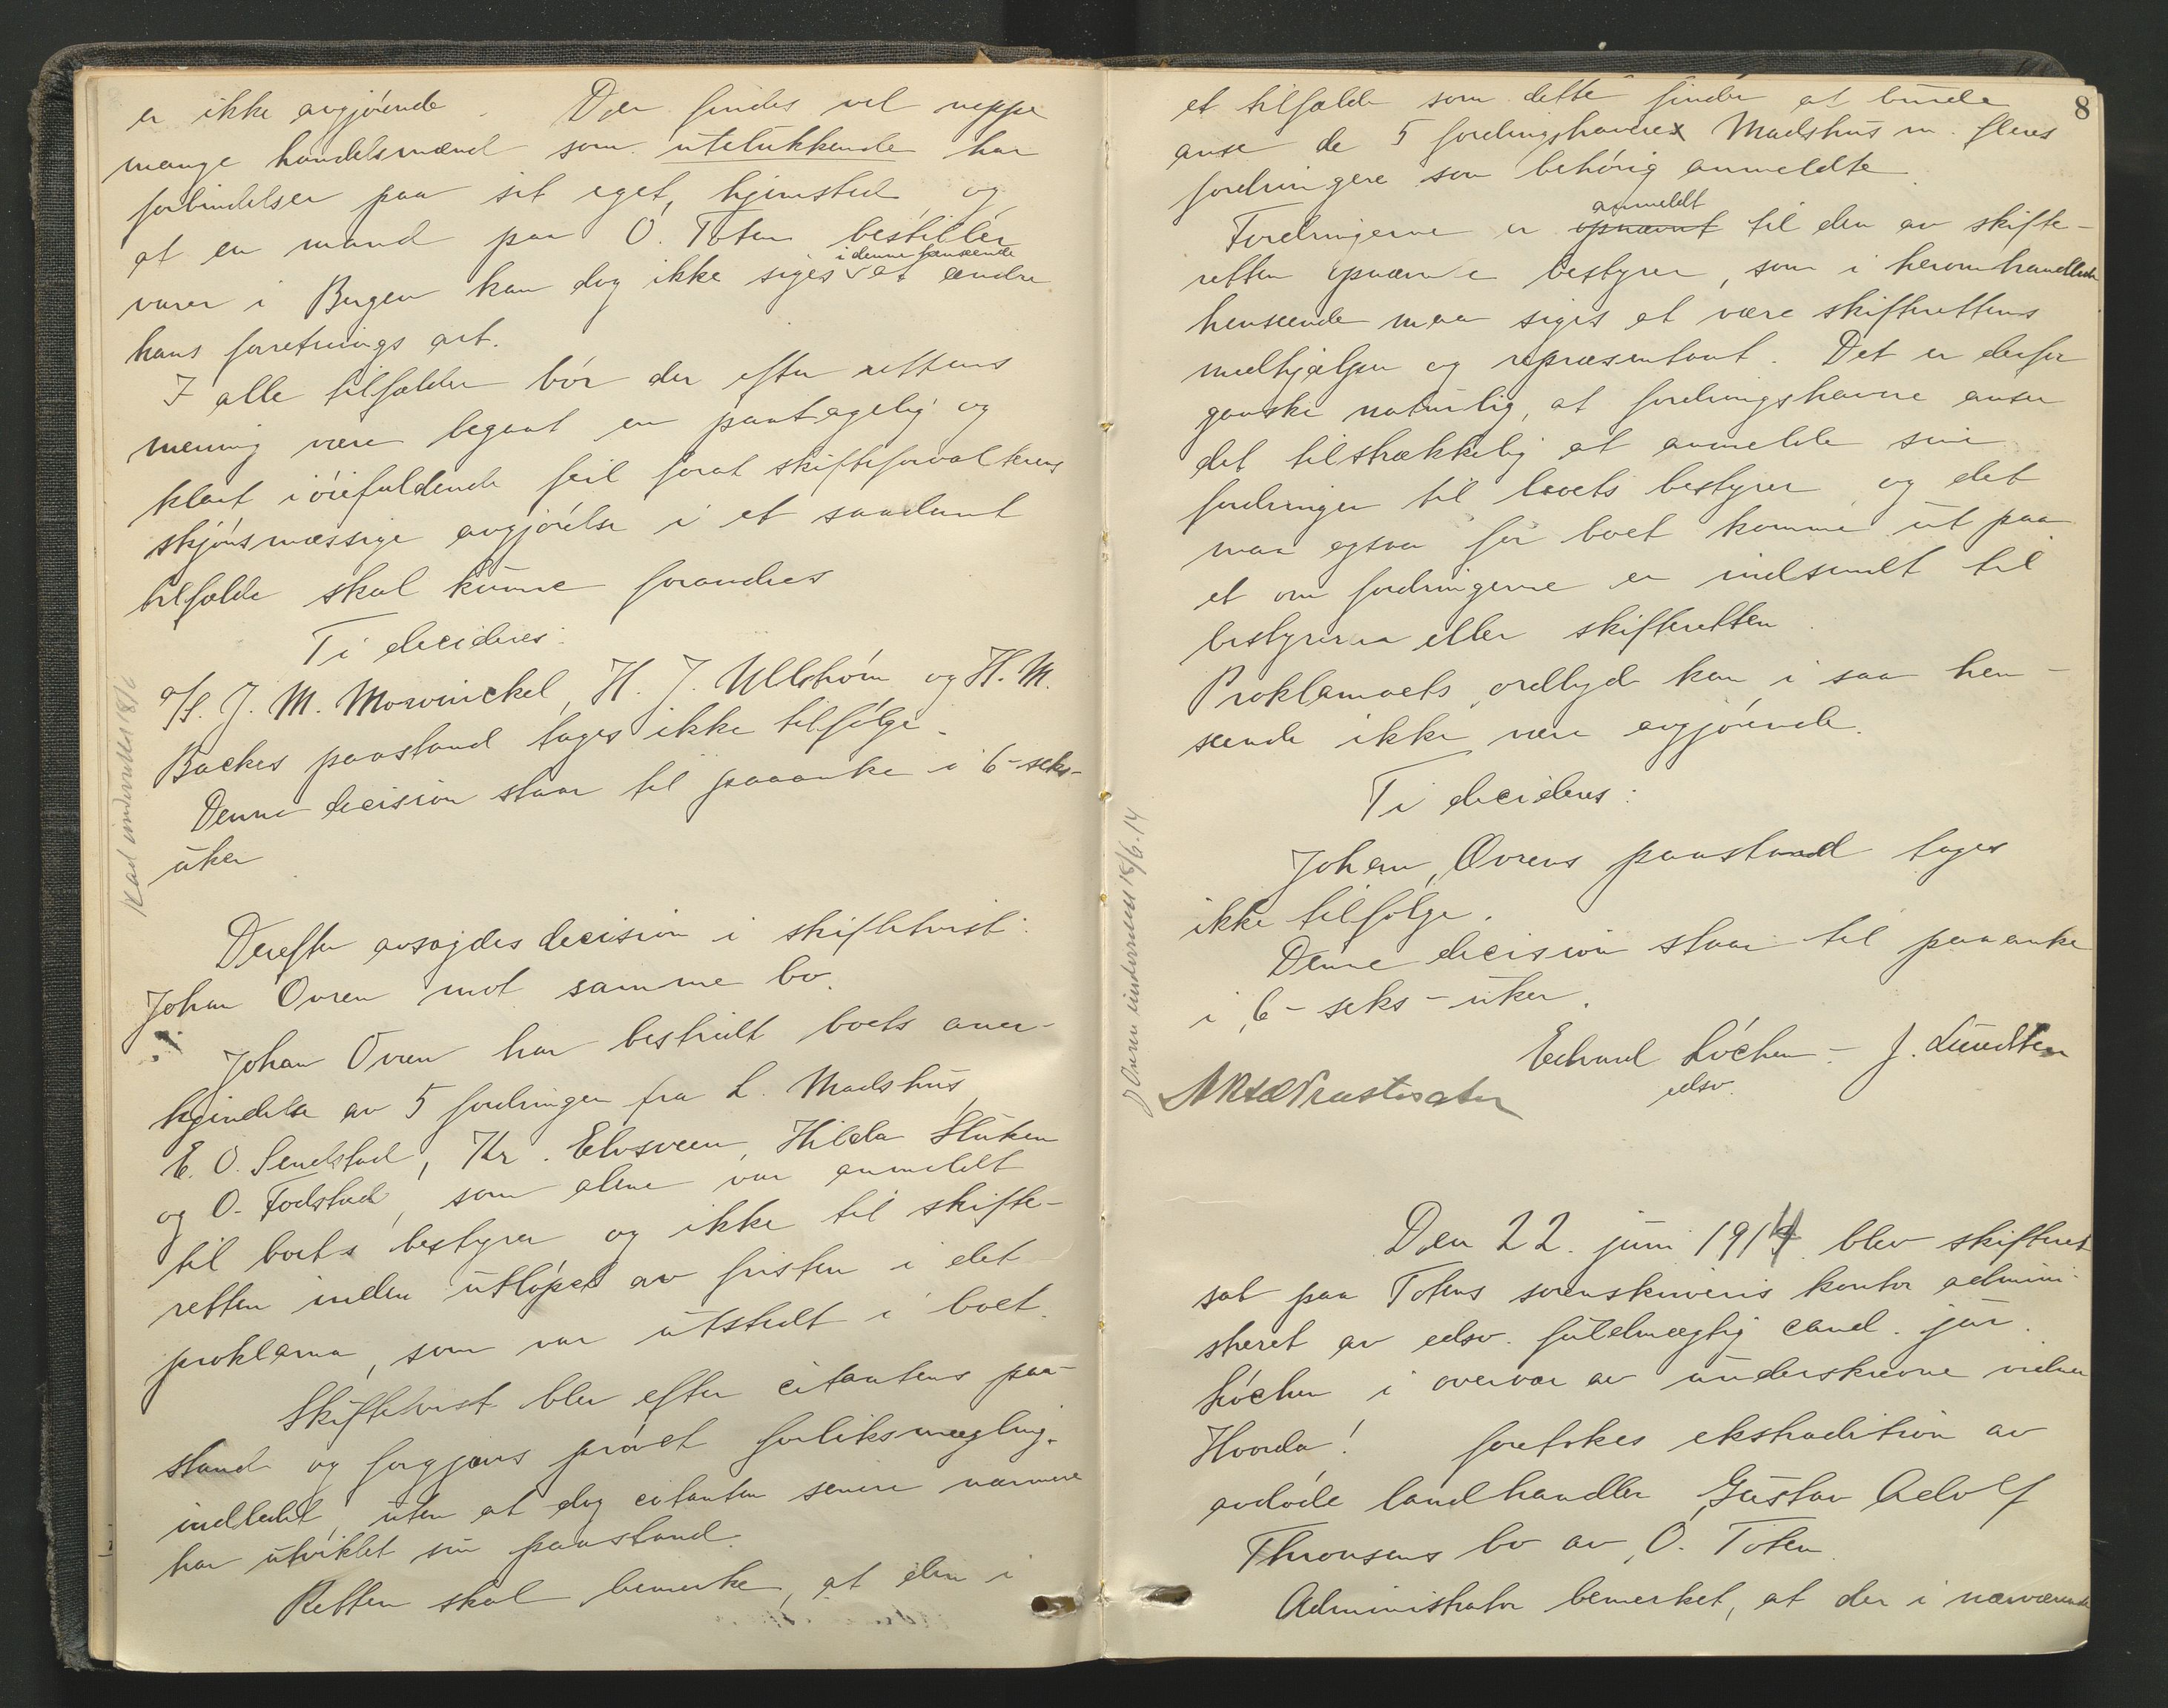 er ikke avgjørende. Der findes vel neppe
mange handelsmænd som utelukkende har
forbindelser paa sit eget hjemsted og
at en mand paa Ø. Toten bestiller
i denne henseende
varer i Bergen kan dog ikke siges at ændre
hans forretnings art.
I alle tilfælder bør der efter rettens
mening være begaat en paatagelig og
klart iøiefaldende feil forat skifteforvalterens
skjønsmæssige avgjørelse i et saadant
tilfælde skal kunne forandres
Ti decideres:
A/S. J. M. Mowinckel, H. J. Ullstrøm og H. M.
Backes paastand tages ikke tilfølge.
Denne decision staar til paaanke i 6-seks-
uker
underrettet 18/6
Derefter avsagdes decision i skiftetvist:
Johan Øvren mot samme bo.
Johan Øvren har bestridt boets aner-
kjendelse av 5 fordringer fra L. Madshus,
E. O. Sendstad, Kr. Elvsveen, Hilda Stuken
og O. Fodstad, som alene var anmeldt
til boets bestyrer og ikke til skifte-
retten inden utløpet av fristen i det
proklama, som var utstedt i boet.
Skiftetvist blev efter citantens paa-
stand og forgjæves prøvet forliksmægling
indledet, uten at dog citanten senere nærmere
har utviklet sin paastand.
Retten skal bemerke, at den i
8
et tilfælde som dette finder at burde
anse de 5 fordringshavere Madshus m. fleres
fordringer som behørig anmeldte
anmeldt
Fordringerne er opnævnt til den av skifte-
retten opnævnte bestyrer, som i heromhandlede
henseende maa siges at være skifterettens
medhjælper og repræsentant. Det er derfor
ganske naturlig, at fordringshavere anser
det tilstrækkelig at anmelde sine
fordringer til boets bestyrer og det
maa ogsaa for boet komme ut paa
et om fordringerne er indsendt til
bestyreren eller skifteretten.
Proklamaets ordlyd kan i saa hen-
seende ikke være avgjørende.
Ti decideres:
Johan Øvrens paastand tages
ikke tilfølge.
Denne decision staar til paaanke
i 6-seks-uker.
J Øvren underrettet 18/6.14
Edvard Løchen - J. Lundsten
edsv.
Den 22. juni 1914 blev skifteret
sat paa Totens sorenskriveris kontor admini-
streret av edsv. fuldmægtig cand. jur.
Løchen i overvær av underskrevne vidner
Hvorda! foretokes ekstradition av
avdøde landhandler Gustav Adolf
Thronsens bo av Ø. Toten
Administrator bemerket, at der i nærværende